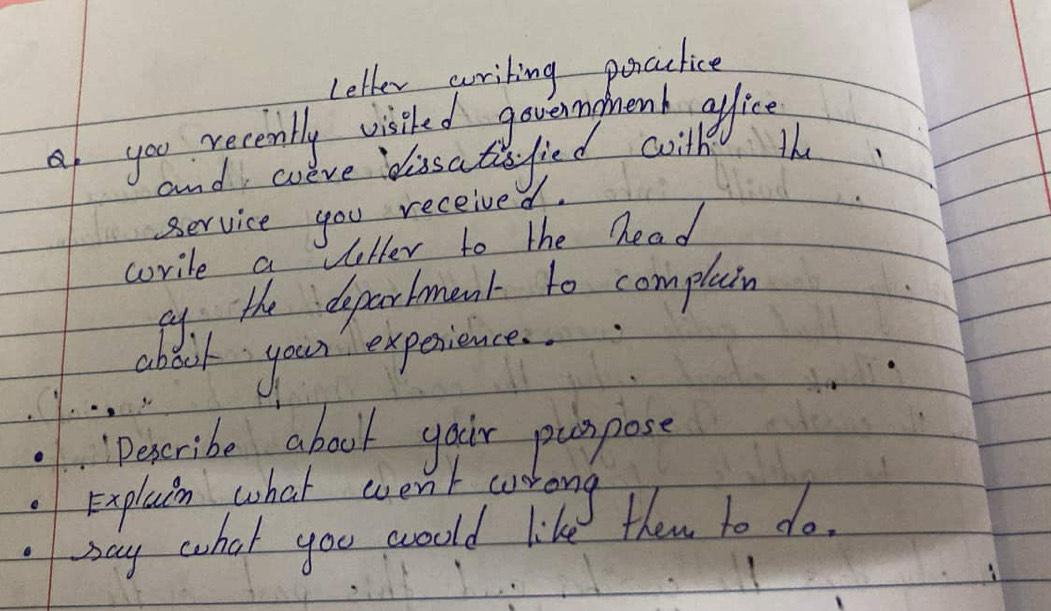 Letter writing practice
Q. you recently visited government office
and were dissatisfied with the
service you received.
write a letter to the head
of the department to complain
about your experience..
• Describe about your purpose
• Explain what went wrong
• say what you would like them to do.